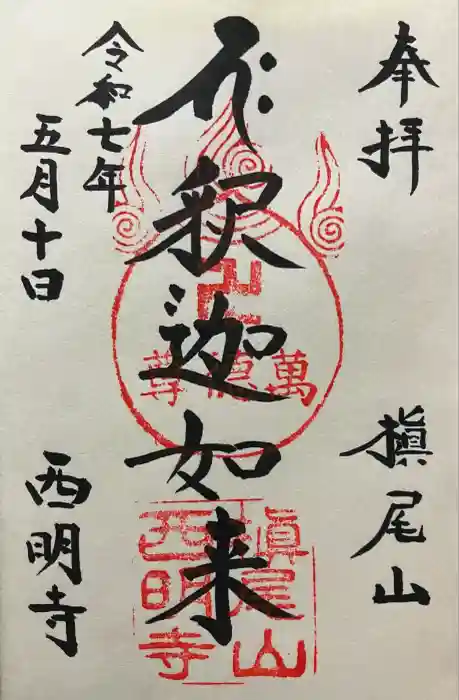 奉拝
槇尾山
釈迦如来
令和七年
五月十日
西明寺
萬德尊
槇尾山
西明寺